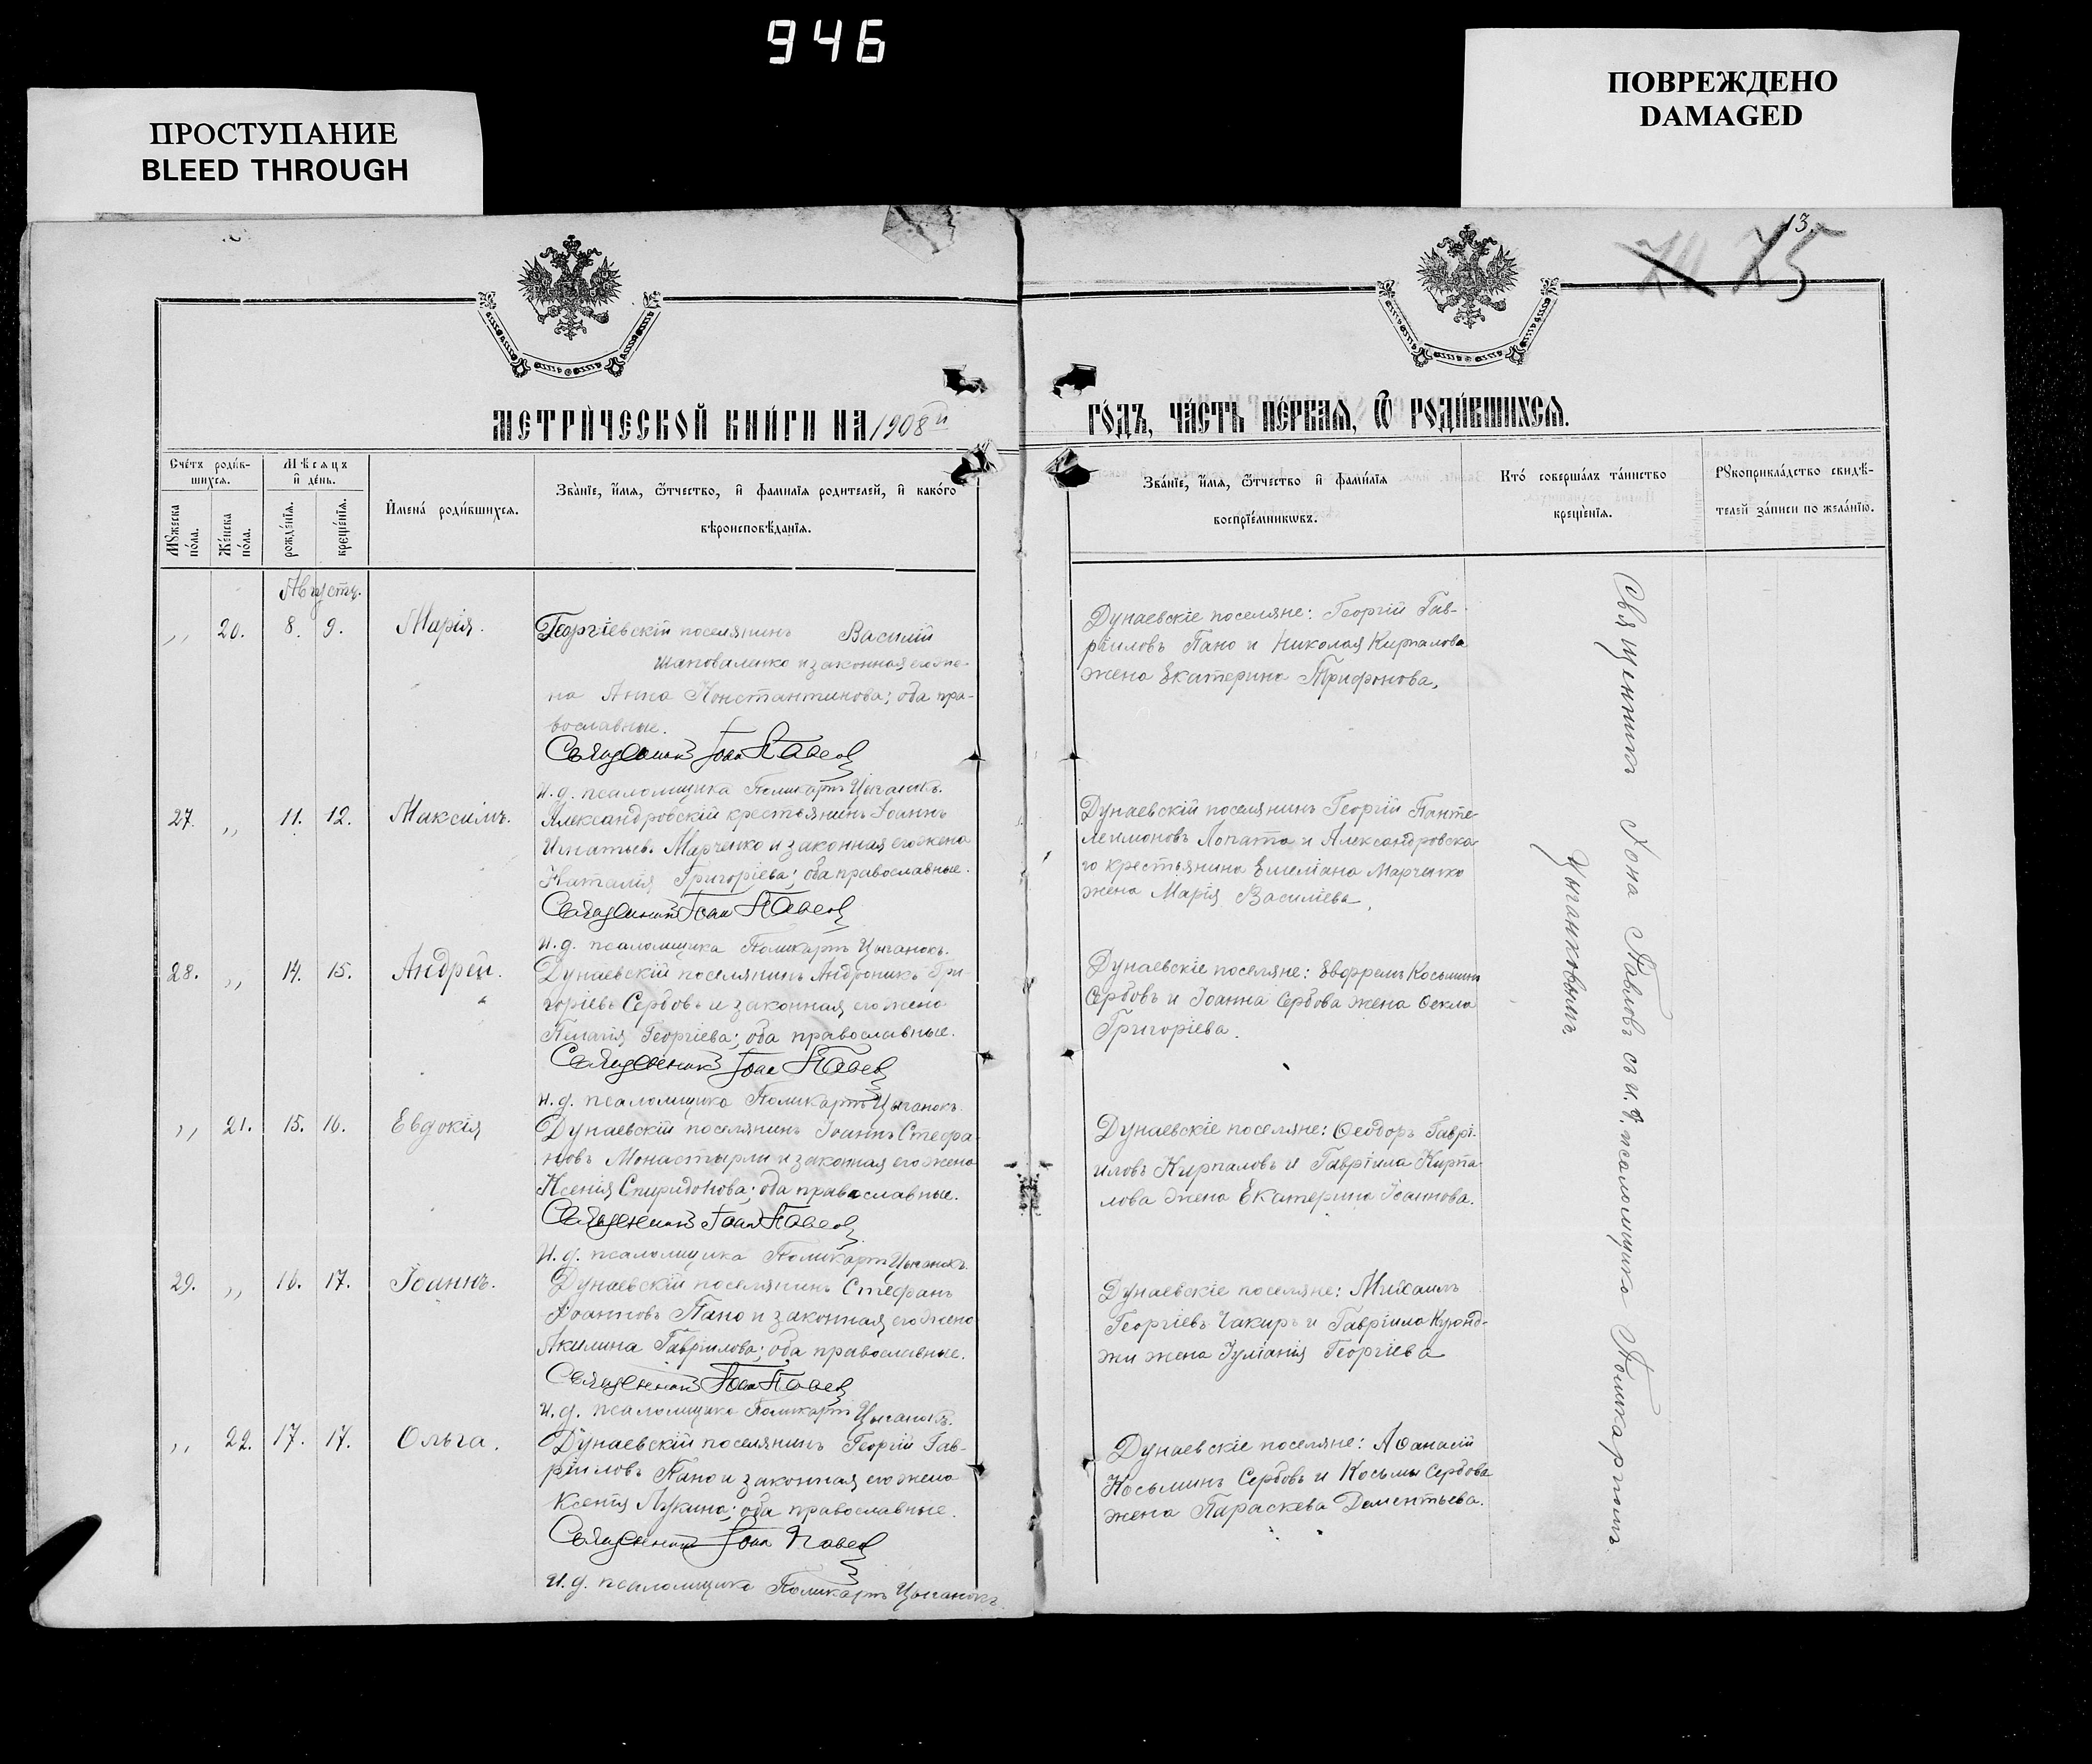 946
ПРОСТУПАНИЕ
BLEED THROUGH
ПОВРЕЖДЕНО
DAMAGED
13.
75
МЕТРИ́ЧЕСКОЙ КНИ́ГИ НА 1908й
ГО́ДЪ, ЧА́СТЬ ПЕ́РВАЯ, Ѽ РОДИ́ВШИХСЯ.
Сче́тъ роди́в-
шихся.
Мѣ́сяцъ
и҆ де́нь.
Мꙋжеска по́ла.
Же́нска по́ла.
рожде́нїѧ.
креще́нїѧ.
И҆мена́ роди́вшихся.
Зва́нїе, и҆́мя, ѻ҆́тчество, и҆ фами́лїя роди́телей, и҆ како́гѡ
вѣроисповѣ́данїя.
Зва́нїе, и҆́мя, ѻ҆́тчество и҆ фами́лїя
воспрїе́мникѡвъ.
Кто́ соверша́лъ та́инство
креще́нїя.
Рꙋкоприкла́дство свидѣ́-
телей за́писи по жела́нїю.
Августъ.
,, 20. 8. 9. Марія.
Георгіевскій поселянинъ Василій
Шаповаленко и законная его же-
на Анна Константинова; оба пра-
вославные.
Священникъ Іоан Павлов
И. д. псаломщика Поликарпъ Цыганокъ.
Дунаевскіе поселяне: Георгій Гав-
ріиловъ Пано и Николая Кирпалова
жена Екатерина Трифонова.
27. ,, 11. 12. Максимъ.
Александровскій крестьянинъ Іоаннъ
Игнатьев. Марченко и законная его жена
Наталія Григоріева; оба православные.
Священникъ Іоан Павлов
И. д. псаломщика Поликарпъ Цыганокъ.
Дунаевскій поселянинъ Георгій Панте-
леимоновъ Лопата и Александровска-
го крестьянина Емеліана Марченко
жена Марія Василіева.
28. ,, 14. 15. Андрей.
Дунаевскій поселянинъ Андроникъ Гри-
горіевъ Сербовъ и законная его жена
Пелагія Георгіева; оба православные.
Священникъ Іоан Павлов
И. д. псаломщика Поликарпъ Цыганокъ.
Дунаевскіе поселяне: Косьминъ
Сербовъ и Іоанна Сербова жена Ѳекла
Григоріева.
,, 21. 15. 16. Евдокія
Дунаевскій поселянинъ Іоаннъ Стефа-
новъ Монастырли и законная его жена
Ксенія Спиридонова; оба православные.
Священникъ Іоан Павлов
И. д. псаломщика Поликарпъ Цыганокъ.
Дунаевскіе поселяне: Ѳеодоръ Гаврі-
иловъ Кирпаловъ и Гавріила Кирпа-
лова жена Екатерина Іоаннова.
29. ,, 16. 17. Іоаннъ.
Дунаевскій поселянинъ Стефанъ
Іоанновъ Пано и законная его жена
Акилина Гавріилова; оба православные.
Священникъ Іоан Павлов
И. д. псаломщика Поликарпъ Цыганокъ.
Дунаевскіе поселяне: Михаилъ
Георгіевъ Чакиръ и Гавріила Куюнд-
жи жена Іуліанія Георгіева
,, 22. 17. 17. Ольга.
Дунаевскій поселянинъ Георгій Гав-
ріиловъ Пано и законная его жена
Ксенія Лукина; оба православные.
Священникъ Іоан Павлов
И. д. псаломщика Поликарпъ Цыганокъ.
Дунаевскіе поселяне: Аѳанасій
Косьминъ Сербовъ и Косьмы Сербова
жена Параскева Дементьева.
Священникъ Іона Павловъ съ и. д. псаломщика Поликарпомъ
Цыганковымъ